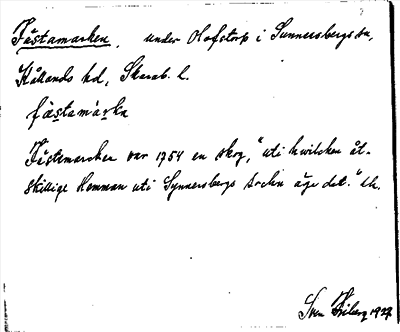 Fästamarken, under Olofstorp i Sunnersbergs sn,
Kållands hd, Skarab. l.
fästamárkn
Fästemarken var 1754 en skog, "uti hwilcken åt-
skillige Hemman uti Synnersbergs Sockn äge del."
Sven Friberg 1927